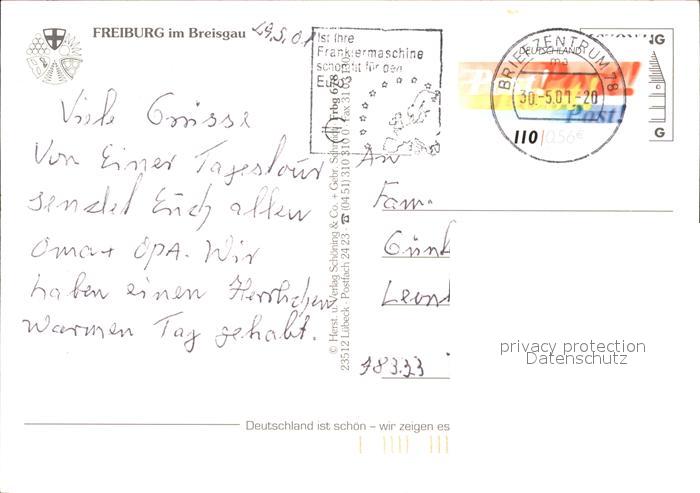 FREIBURG im Breisgau
29.5.01
Ist Ihre
Frankiermaschine
schon fit für den
Euro?
DEUTSCHLAND
BRIEFZENTRUM 78
ma
30.-5.01-20
Post!
110 0,56€
G
G
Viele Grüsse
Von Einer Tagestour
sendet Euch allen
Oma + OPA. Wir
haben einen Herrlichen
Warmen Tag gehabt.
© Herst. u. Verlag Schöning & Co. + Gebr. Schmidt Frbg 678
23512 Lübeck · Postfach 24 23 · ☎ (04 51) 310 310 0
An
Fam.
Günt
Leont
78333
privacy protection
Datenschutz
Deutschland ist schön – wir zeigen es